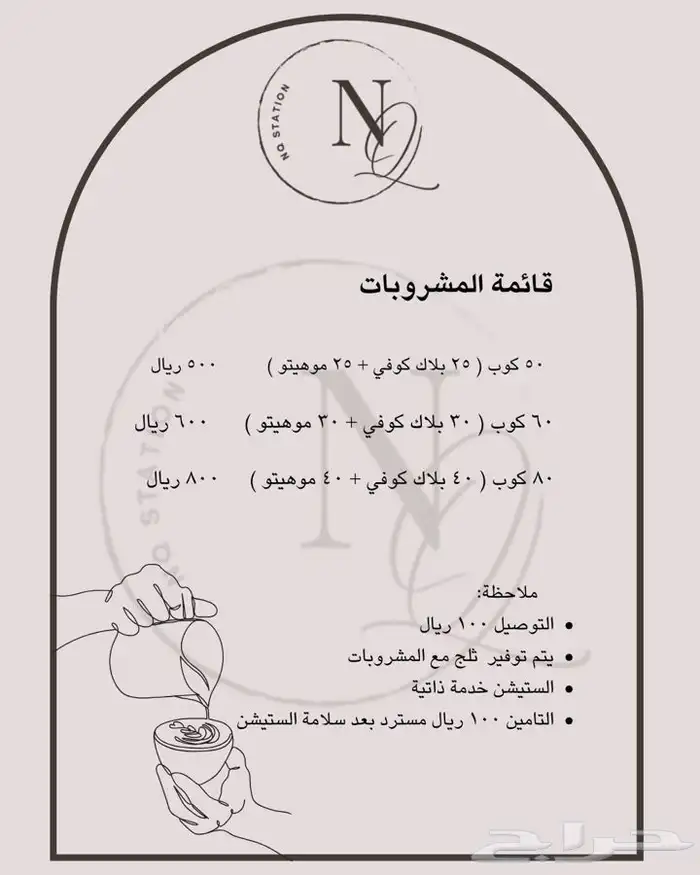 NQ STATION
NQ
قائمة المشروبات
٥٠ كوب ( ٢٥ بلاك كوفي + ٢٥ موهيتو ) ٥٠٠ ريال
٦٠ كوب ( ٣٠ بلاك كوفي + ٣٠ موهيتو ) ٦٠٠ ريال
٨٠ كوب ( ٤٠ بلاك كوفي + ٤٠ موهيتو ) ٨٠٠ ريال
NQ STATION
NQ
ملاحظة:
• التوصيل ١٠٠ ريال
• يتم توفير ثلج مع المشروبات
• الستيشن خدمة ذاتية
• التامين ١٠٠ ريال مسترد بعد سلامة الستيشن
حراج